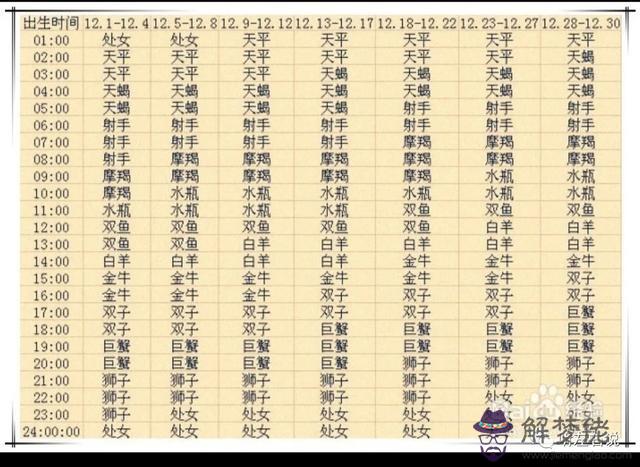 出生时间 12.1-12.4 12.5-12.8 12.9-12.12 12.13-12.17 12.18-12.22 12.23-12.27 12.28-12.30
01:00 处女 处女 天平 天平 天平 天平 天平
02:00 天平 天平 天平 天平 天平 天平 天蝎
03:00 天平 天平 天平 天蝎 天蝎 天蝎 天蝎
04:00 天蝎 天蝎 天蝎 天蝎 天蝎 天蝎 天蝎
05:00 天蝎 天蝎 天蝎 天蝎 射手 射手 射手
06:00 射手 射手 射手 射手 射手 射手 射手
07:00 射手 射手 射手 射手 摩羯 摩羯 摩羯
08:00 射手 摩羯 摩羯 摩羯 摩羯 摩羯 摩羯
09:00 摩羯 摩羯 摩羯 摩羯 摩羯 水瓶 水瓶
10:00 摩羯 水瓶 水瓶 水瓶 水瓶 水瓶 水瓶
11:00 水瓶 水瓶 水瓶 水瓶 双鱼 双鱼 双鱼
12:00 双鱼 双鱼 双鱼 双鱼 双鱼 白羊 白羊
13:00 双鱼 双鱼 白羊 白羊 白羊 白羊 白羊
14:00 白羊 白羊 白羊 白羊 金牛 金牛 金牛
15:00 金牛 金牛 金牛 金牛 金牛 金牛 双子
16:00 金牛 金牛 金牛 双子 双子 双子 双子
17:00 双子 双子 双子 双子 双子 双子 巨蟹
18:00 双子 双子 双子 巨蟹 巨蟹 巨蟹 巨蟹
19:00 巨蟹 巨蟹 巨蟹 巨蟹 巨蟹 巨蟹 巨蟹
20:00 巨蟹 巨蟹 巨蟹 巨蟹 狮子 狮子 狮子
21:00 狮子 狮子 狮子 狮子 狮子 狮子
22:00 狮子 狮子 狮子 狮子 狮子 处女 处女
23:00 狮子 处女 处女 处女 处女
24:00:00 处女 处女 处女 处女
解梦佬
www.jiemenglao.com